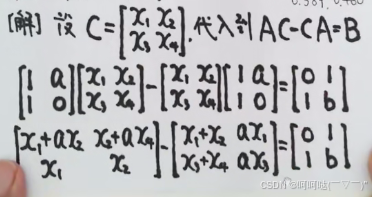 [解] 设 C=[x₁ x₂; x₃ x₄].代入到 AC-CA=B
[1 a; 1 0][x₁ x₂; x₃ x₄]-[x₁ x₂; x₃ x₄][1 a; 1 0]=[0 1; 1 b]
[x₁+ax₂ x₂+ax₄; x₁ x₂]-[x₁+x₂ ax₁; x₃+x₄ ax₃]=[0 1; 1 b]
CSDN @呵呵哒(￣▽￣)"